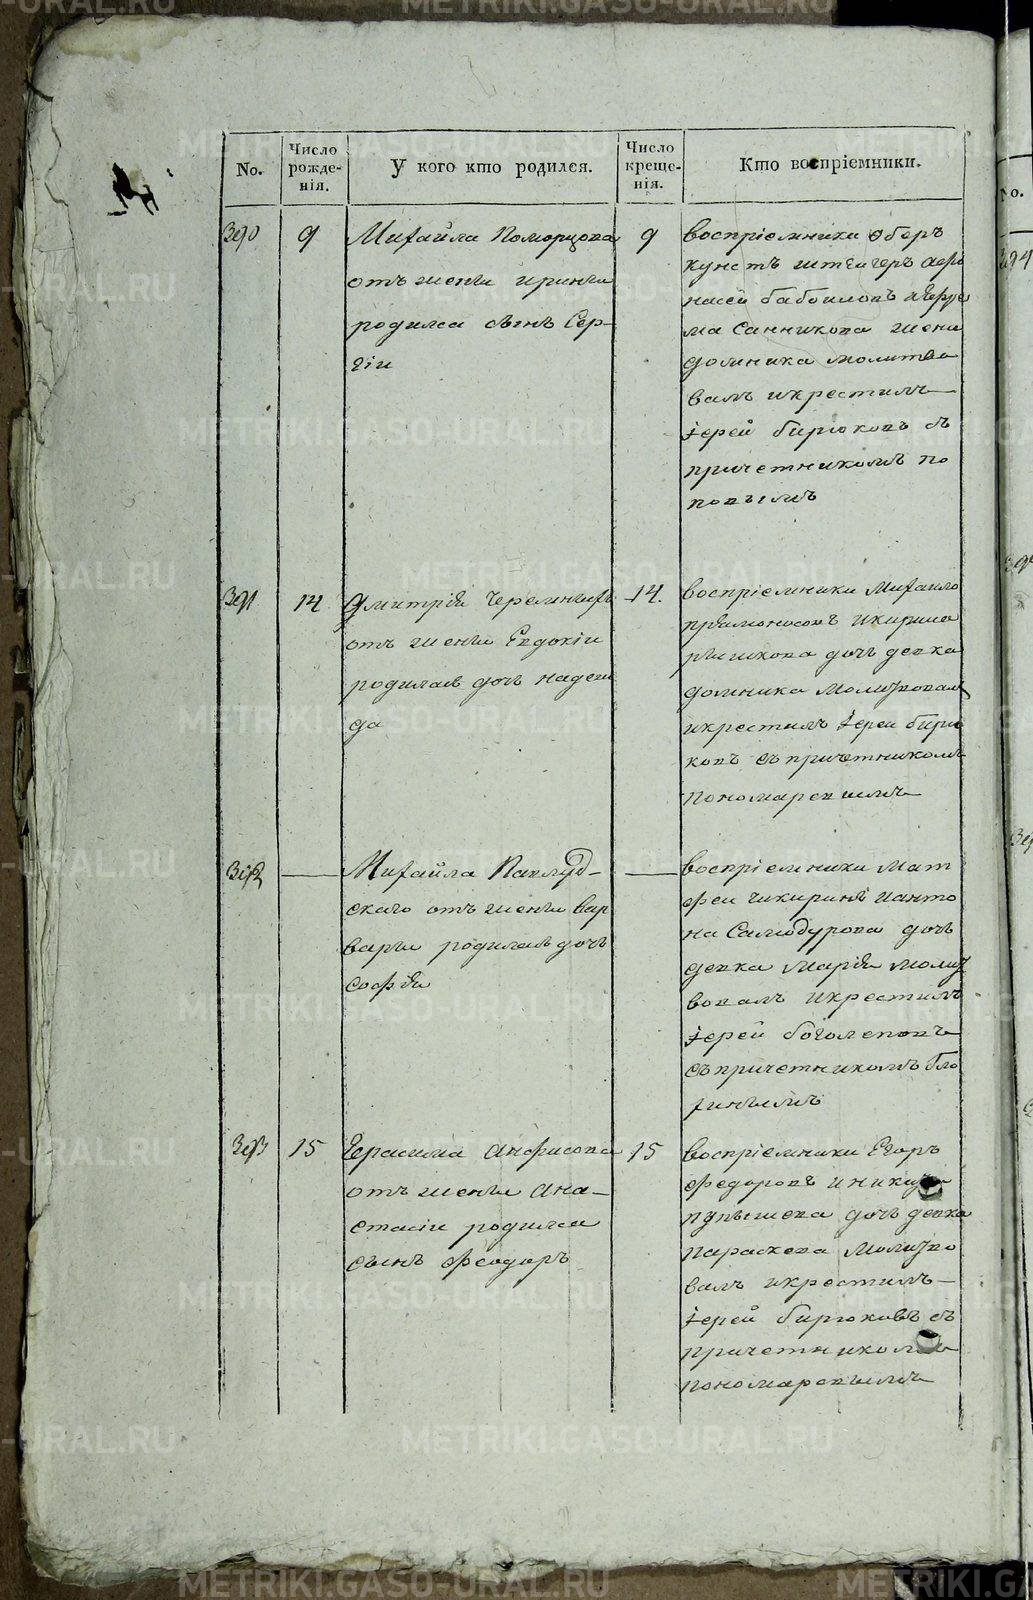 No.
Число рожденія.
У кого кто родился.
Число крещенія.
Кто воспріемники.
390
9
Михайла Поморцова
отъ жены ирины
родился сынъ Сер-
гіи
9
воспріемники оберъ
кунстъ штейгеръ афо
насей бабоиловъ иефре
ма Санникова жена
домника молитво
валъ икрестилъ
іерей бирюковъ съ
причетникомъ по
повымъ
391
14
Дмитрія
отъ жены Евдокіи
родилась дочь надеж
да
14.
воспріемники Михаило
прямоносовъ икирила
дочь девка
домника молитвовалъ
икрестилъ іереи бирю
ковъ съ причетникомъ
пономаревымъ
392
Михайла Павлуд-
скаго отъ жены вар
вары родилась дочь
софія
воспріемники Мат
феи чикиринъ ианто
на Самодурова дочь
девка Марія молит
вовалъ икрестилъ
іерей боголеповъ
съ причетникомъ бло
хинымъ
393
15
Герасима анфисова
отъ жены Ана-
стасіи родился
сынъ феодоръ
15
воспріемники Егоръ
федоровъ иникиты
пупышева дочь девка
параскева молитво
валъ икрестилъ
іерей бирюковъ съ
причетникомъ
пономаревымъ
No.
METRIKI.GASO-URAL.RU